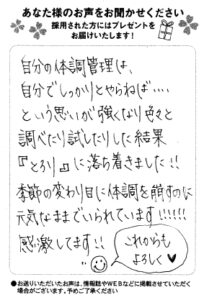 あなた様のお声をお聞かせください
採用された方にはプレゼントを
お届けいたします!
自分の体調管理は、
自分でしっかりとやらねば‥‥
という思いが強くなり色々と
調べたり試したりした結果
『とろり』に落ち着きました!!
季節の変わり目に体調を崩すのに
元気なままでいられています!!!!!!
感激してます!!
これからも
よろしく
●お送りいただいたお声は、情報誌やWEBなどに掲載させていただく
場合がございます。予めご了承ください